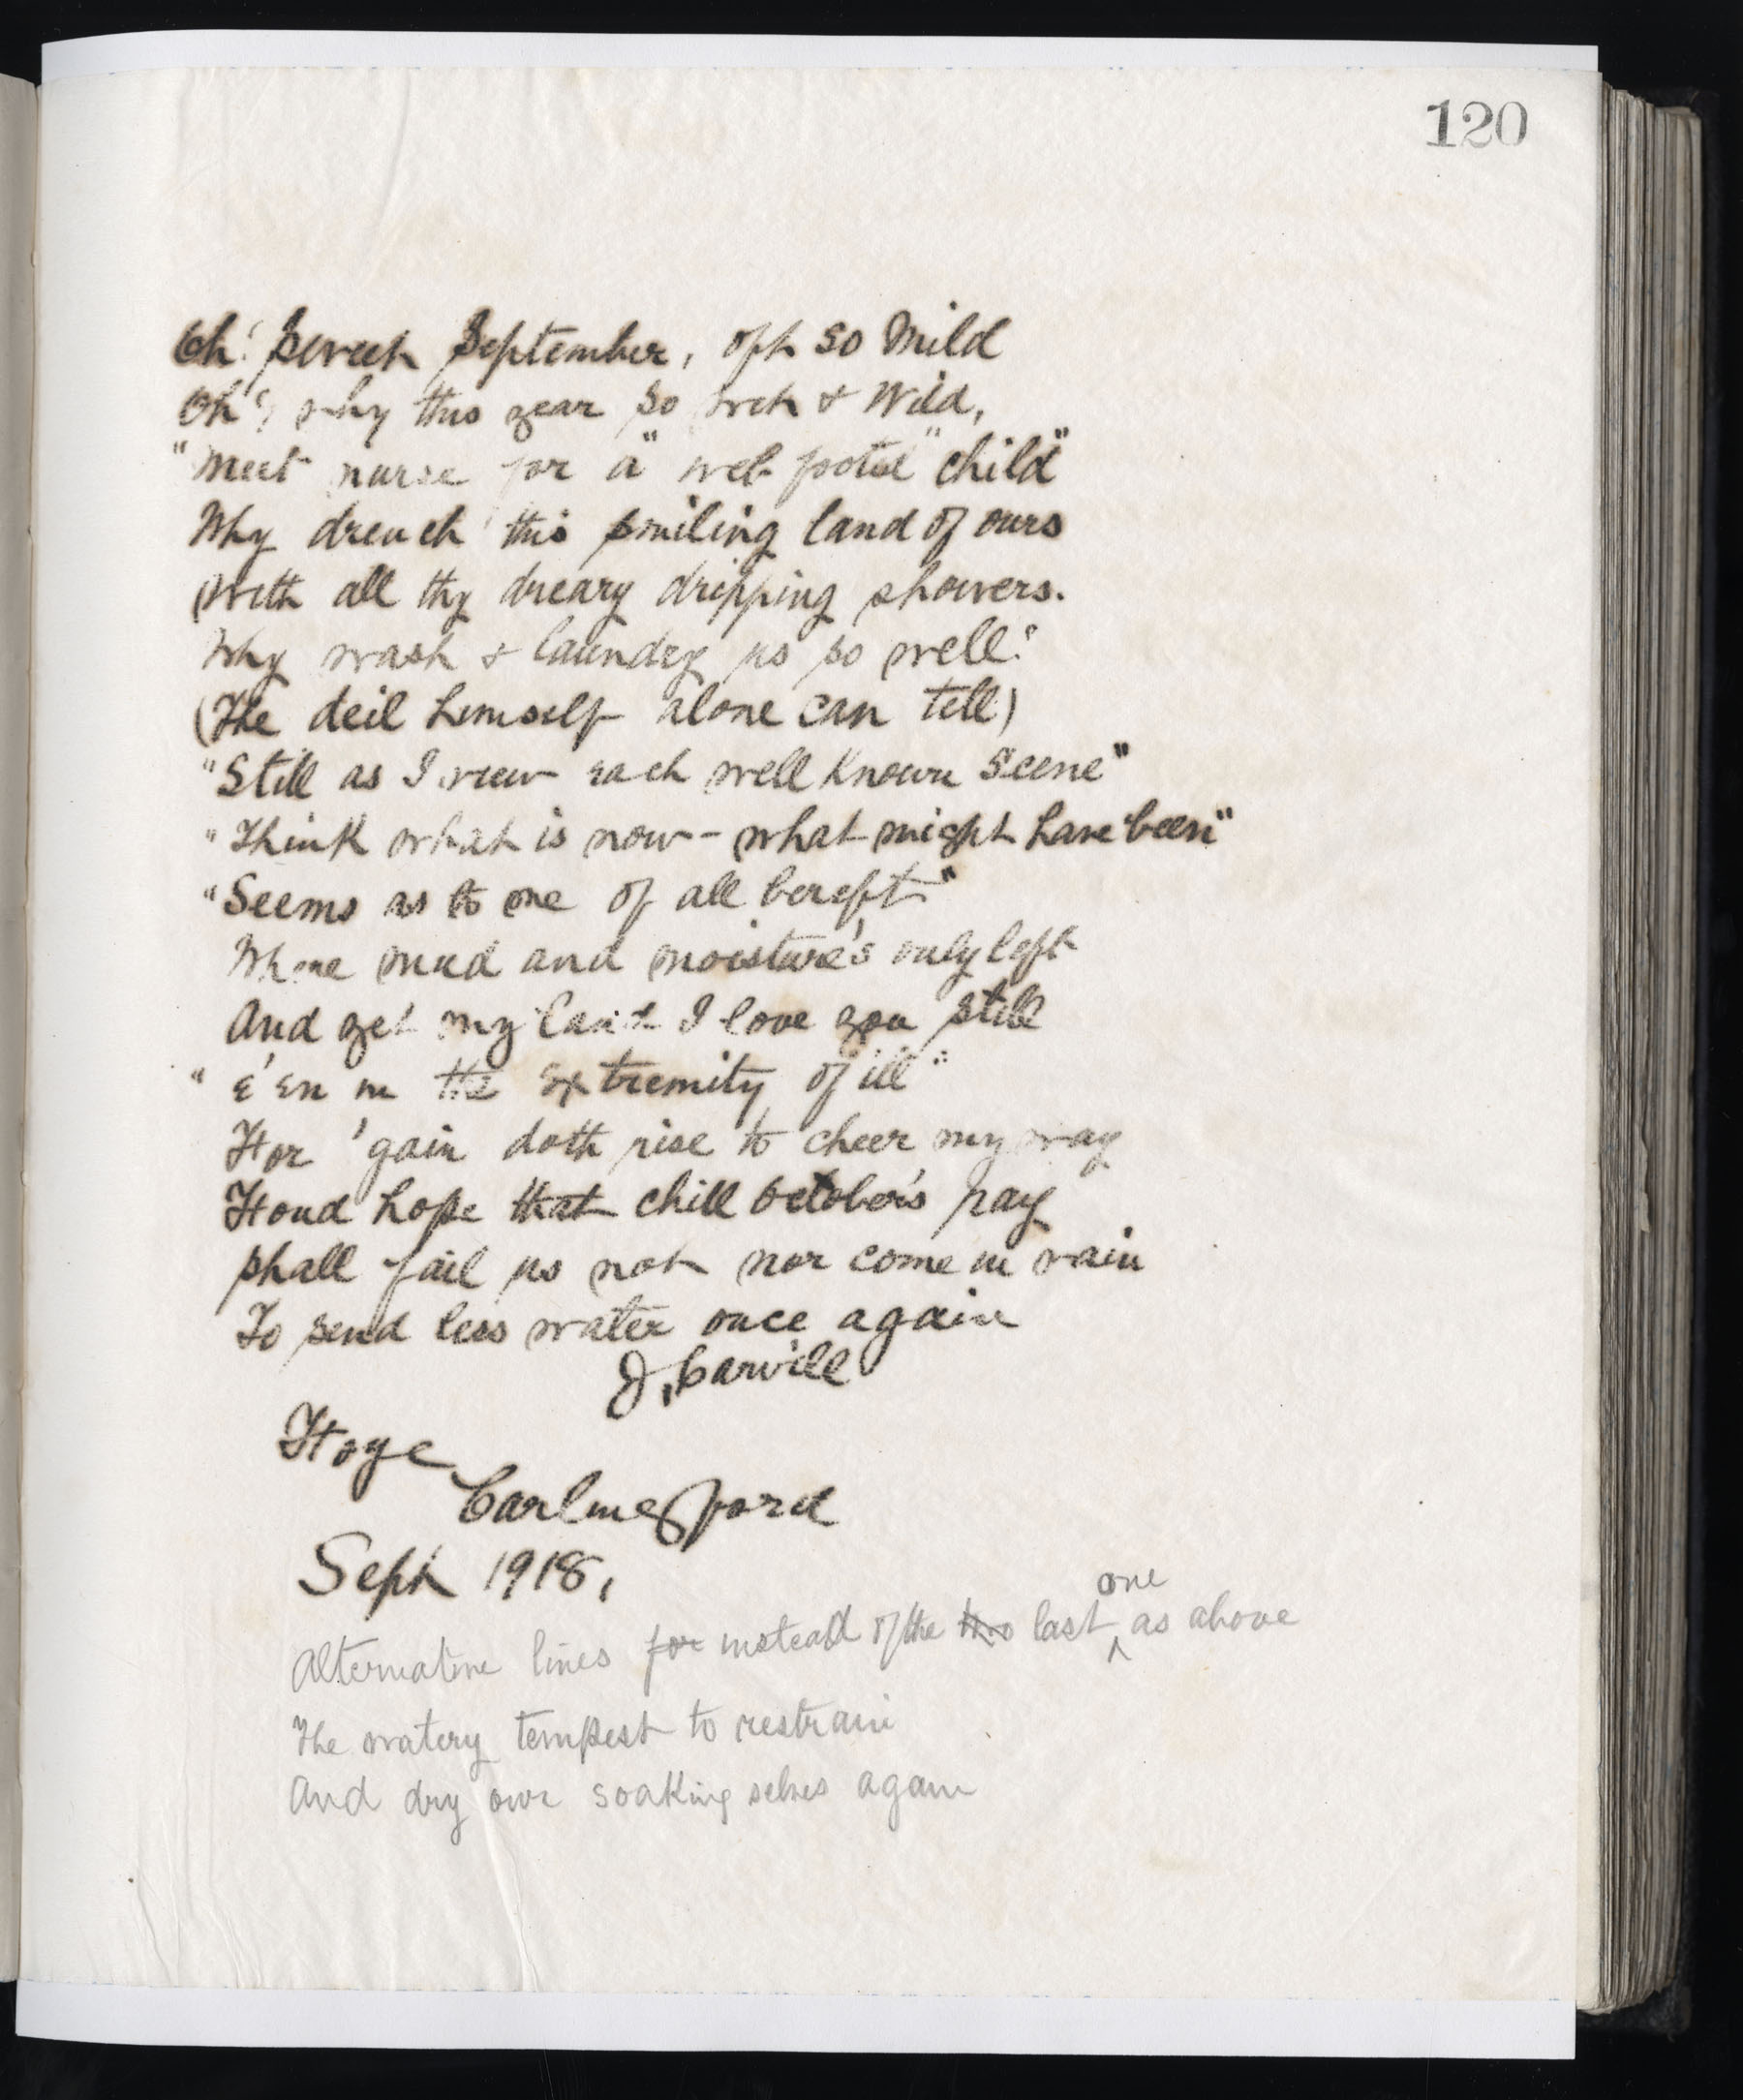 120
Oh! Sweet September, oft so Mild
Oh!, why this year so wet & Wild,
"Meet nurse for a" wet footed "child"
Why drench this smiling land of ours
With all thy dreary dripping showers.
Why wash & laundry us so well?
(The deil himself alone can tell)
"Still as I view each well Known Scene"
"Think what is now - what might have been"
"Seems as to me of all bereft"
Where mud and moisture's only left
And yet my land I love you still
"e'en in the extremity of ill"
For 'gain doth rise to cheer my way
Fond hope that chill October's ray
shall fail us not nor come in vain
To send less water once again
J. Carvill
Foye
Carlingford
Sept 1918,
Alternative lines for instead of the two last one as above
The watery tempest to restrain
And dry our soaking selves again